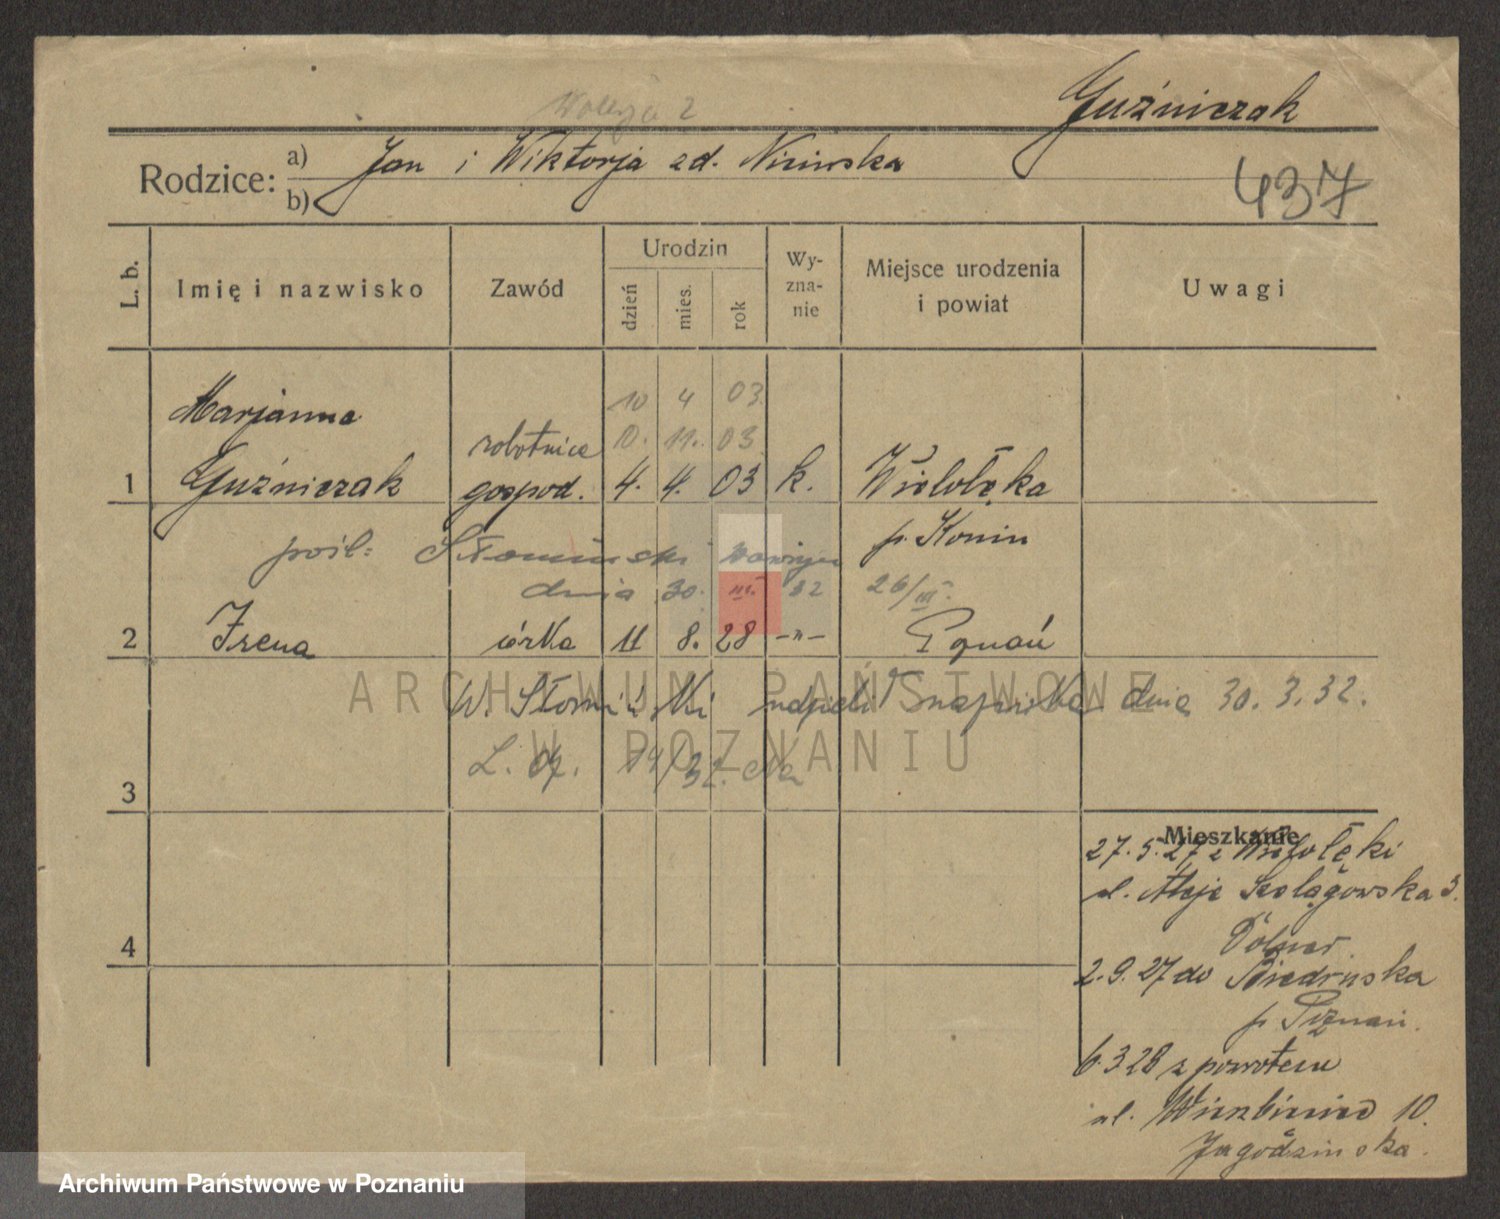 Guźniczak
Rodzice: a) Jan i Wiktorja zd.
b)
437
L. b.
Imię i nazwisko
Zawód
Urodzin
dzień
mies.
rok
Wy-
zna-
nie
Miejsce urodzenia
i powiat
Uwagi
10 4 03
Marjanna
robotnica
11. 03
1 Guźniczak gospod. 4. 4. 03 k. Wielołęka
p. Konin
pośl:
dnia 30. III. 32 26/III.
2 Irena córka 11 8. 28 -"- Poznań
ARCHIWUM PAŃSTWOWE
W POZNANIU
dnia 30.3.32.
L. dz. 14/32.
3
Mieszkanie
27.5.27 z Wielołęki
ul. Aleje Szelągowska 3.
4
2.9.27 do Biedruska
p. Poznań.
6.3 28 z powrotem
ul. Wierzbięcice 10.
Jagodzińska.
Archiwum Państwowe w Poznaniu